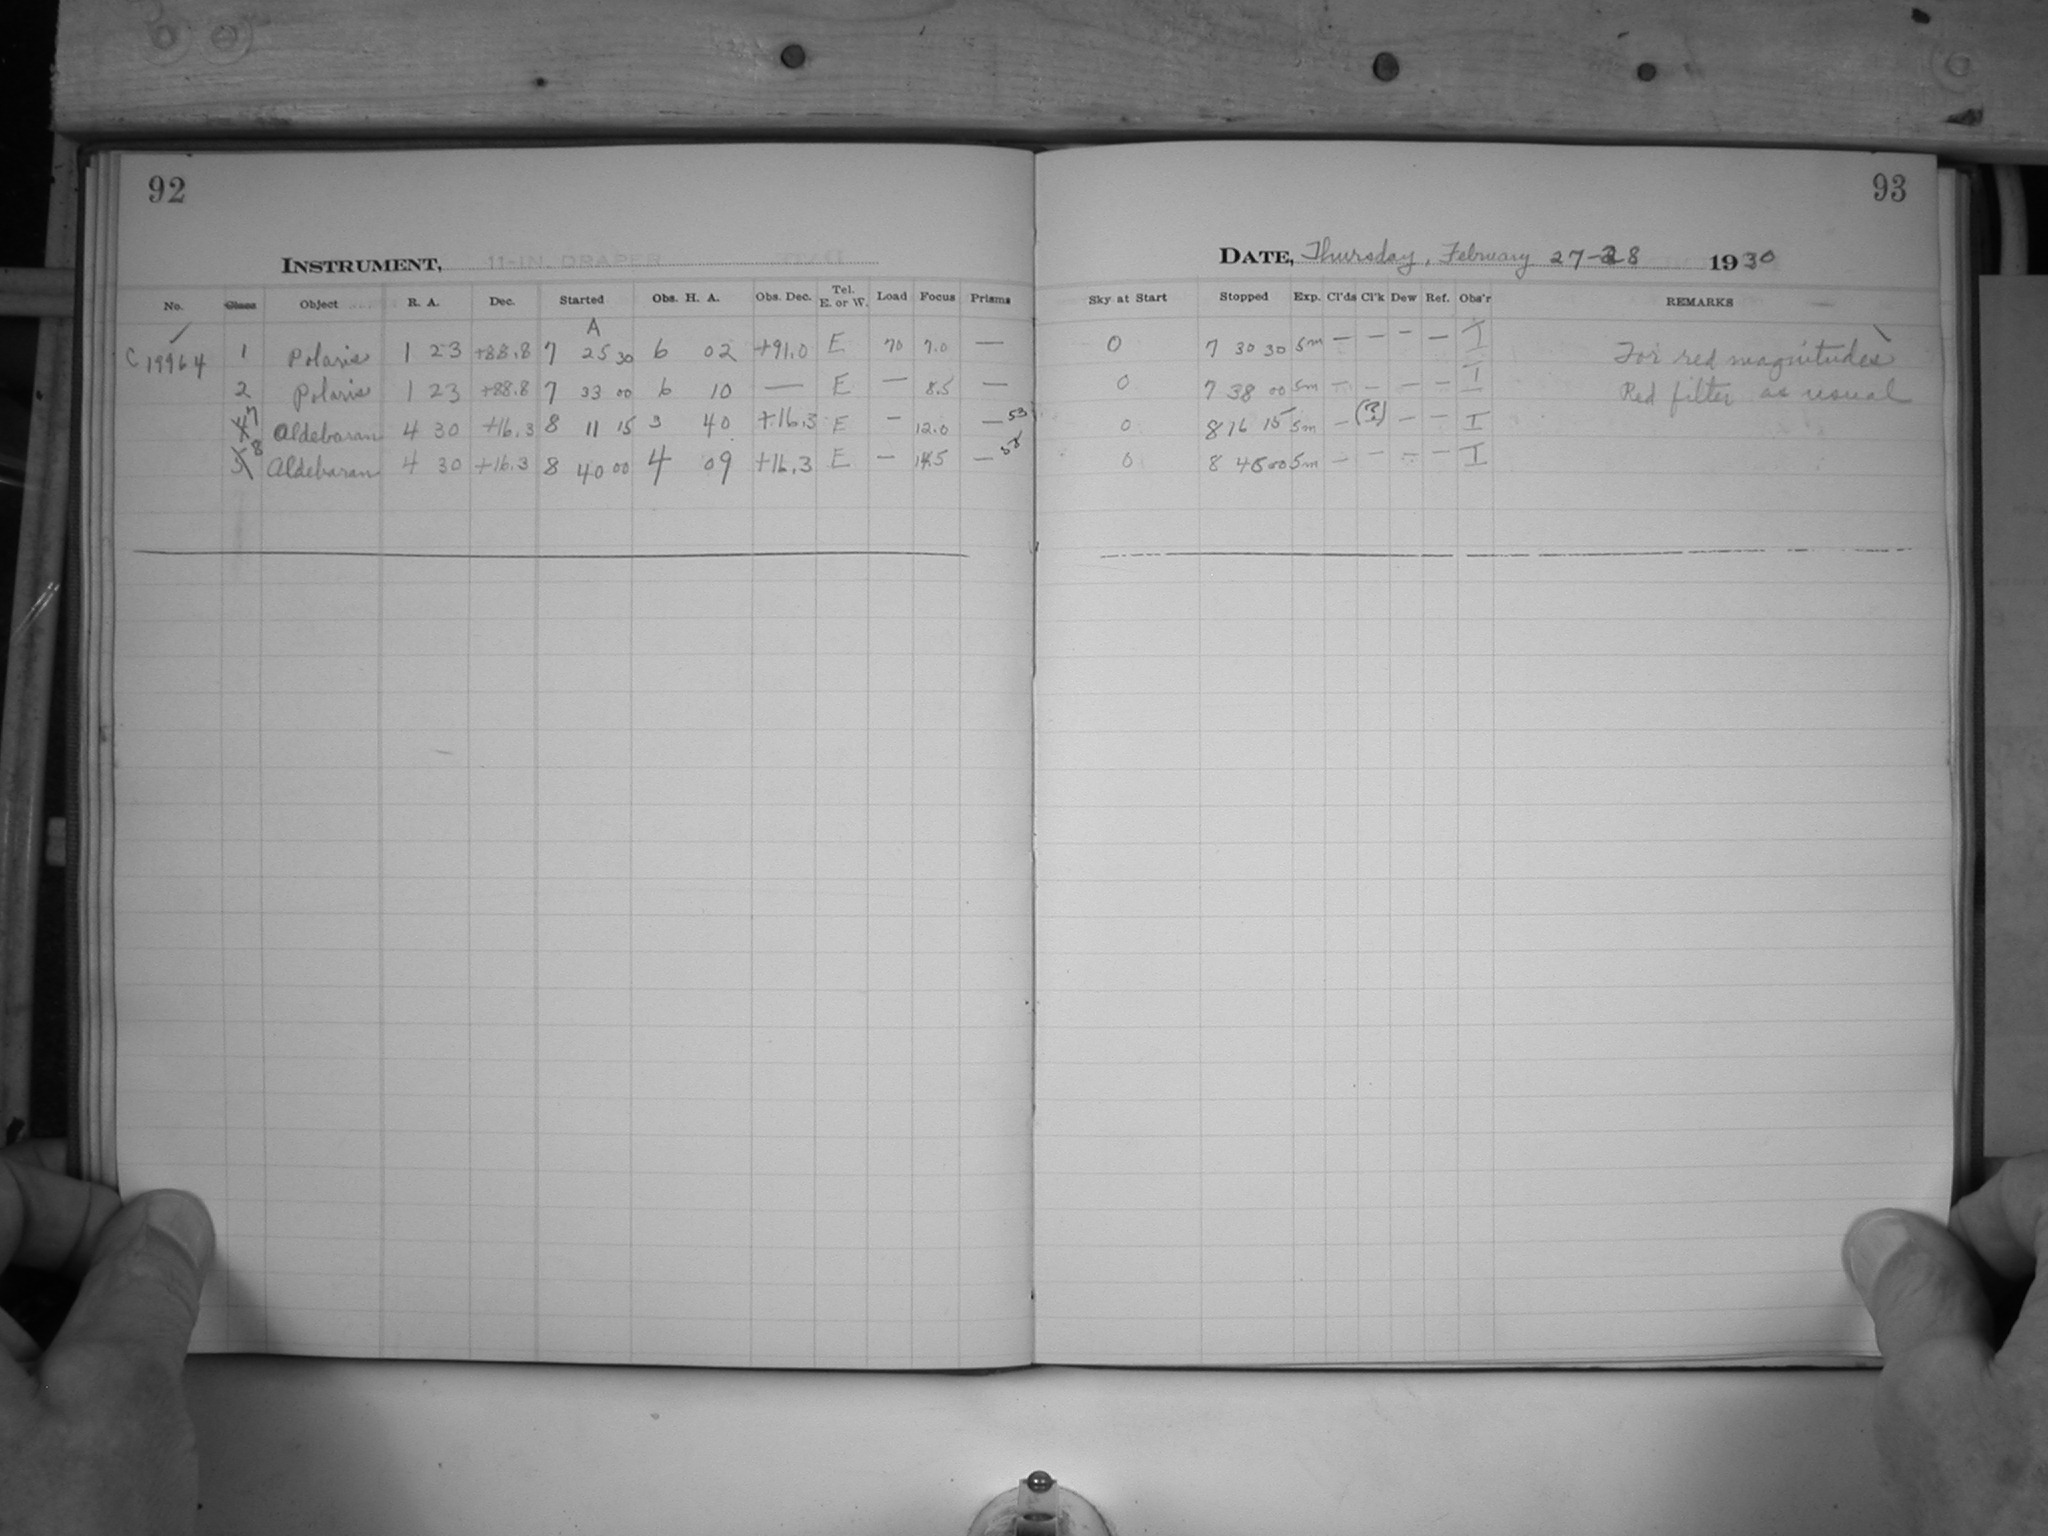 92
INSTRUMENT, 11-IN. DRAPER
No. Class Object R. A. Dec. Started Obs. H. A. Obs. Dec. Tel. E. or W. Load Focus Prisms
A
C 19964 1 Polaris 1 23 +88.8 7 25 30 6 02 +91.0 E 70 7.0 —
2 Polaris 1 23 +88.8 7 33 00 6 10 — E — 8.5 —
7 Aldebaran 4 30 +16.3 8 11 15 3 40 +16.3 E — 12.0 — 53
8 Aldebaran 4 30 +16.3 8 40 00 4 09 +16.3 E — —
93
DATE, Thursday, February 27-28 1930
Sky at Start Stopped Exp. Cl'ds Cl'k Dew Ref. Obs'r REMARKS
0 7 30 30 5m — — — — I For red magnitudes
0 7 38 00 5m — — — — I Red filter as usual
0 8 16 15 5m — (?) — — I
0 8 45 00 5m — — — — I